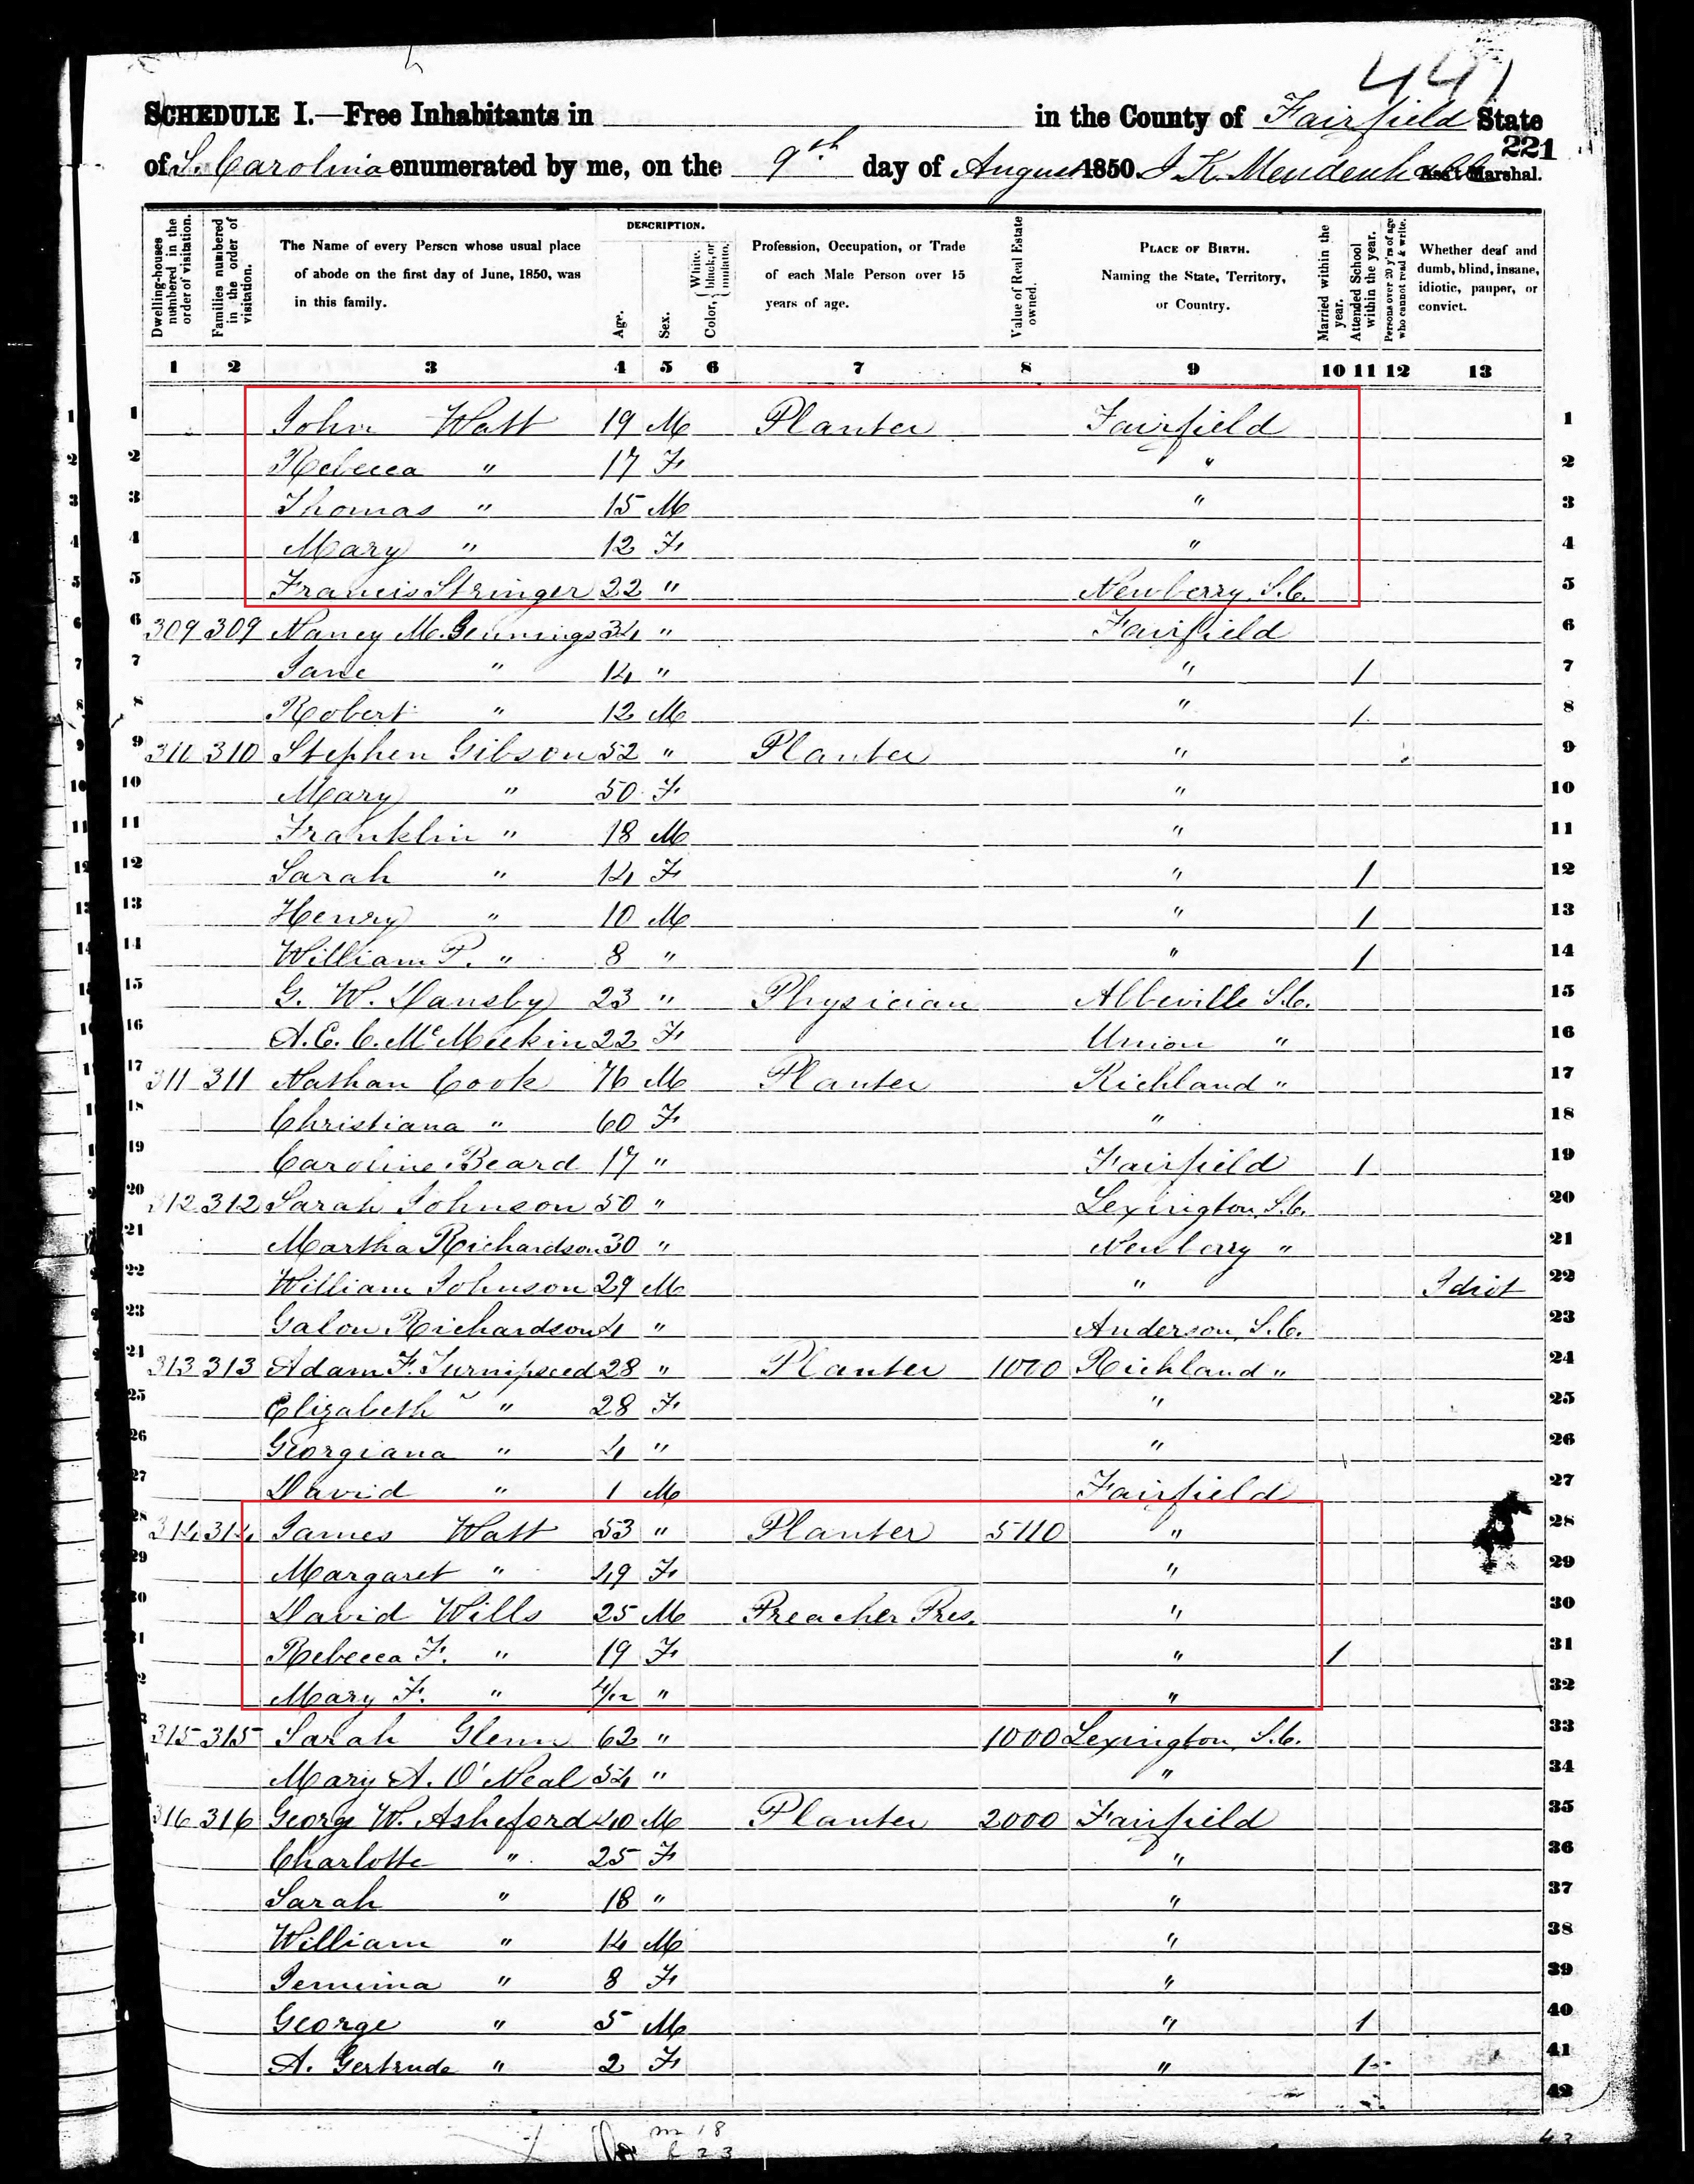 441
SCHEDULE I.—Free Inhabitants in in the County of Fairfield State
221
of S. Carolina enumerated by me, on the 9th day of August 1850. J. K. Mendenhall Ass't Marshal.
Dwelling-houses numbered in the order of visitation.
Families numbered in the order of visitation.
The Name of every Person whose usual place of abode on the first day of June, 1850, was in this family.
DESCRIPTION.
Age.
Sex.
Color, { White, black, or mulatto.
Profession, Occupation, or Trade of each Male Person over 15 years of age.
Value of Real Estate owned.
PLACE OF BIRTH. Naming the State, Territory, or Country.
Married within the year.
Attended School within the year.
Persons over 20 y'rs of age who cannot read & write.
Whether deaf and dumb, blind, insane, idiotic, pauper, or convict.
1 2 3 4 5 6 7 8 9 10 11 12 13
1 John Watt 19 M Planter Fairfield 1
2 Rebecca " 17 F " 2
3 Thomas " 15 M " 3
4 Mary " 12 F " 4
5 Francis Stringer 22 " Newberry S.C. 5
6 309 309 Nancy M. Gennings 34 " Fairfield 6
7 Jane " 14 " " 1 7
8 Robert " 12 M " 1 8
9 310 310 Stephen Gibson 52 " Planter " 9
10 Mary " 50 F " 10
11 Franklin " 18 M " 11
12 Sarah " 14 F " 1 12
13 Henry " 10 M " 1 13
14 William P. " 8 " " 1 14
15 G. W. Dansby 23 " Physician Abbeville S.C. 15
16 A. E. C. McMeekin 22 F Union " 16
17 311 311 Nathan Cook 76 M Planter Richland " 17
18 Christiana " 60 F " 18
19 Caroline Beard 17 " Fairfield 1 19
20 312 312 Sarah Johnson 50 " Lexington S.C. 20
21 Martha Richardson 30 " Newberry " 21
22 William Johnson 29 M " Idiot 22
23 Galon Richardson 4 " Anderson, S.C. 23
24 313 313 Adam F. Turnipseed 28 " Planter 1000 Richland " 24
25 Elizabeth " 28 F " 25
26 Georgiana " 4 " " 26
27 David " 1 M Fairfield 27
28 314 314 James Watt 53 " Planter 5110 " 28
29 Margaret " 49 F " 29
30 David Wills 25 M Preacher Pres. " 30
31 Rebecca F. " 19 F " 1 31
32 Mary F. " 4/12 " " 32
315 315 Sarah Glenn 62 " 1000 Lexington, S.C. 33
Mary A. O'Neal 54 " " 34
316 316 Georg W. Asheford 40 M Planter 2000 Fairfield 35
Charlotte " 25 F " 36
Sarah " 18 " " 37
William " 14 M " 38
Jemima " 8 F " 39
George " 5 M " 1 40
A. Gertrude " 2 F " 1 41
42
m 18
f 23